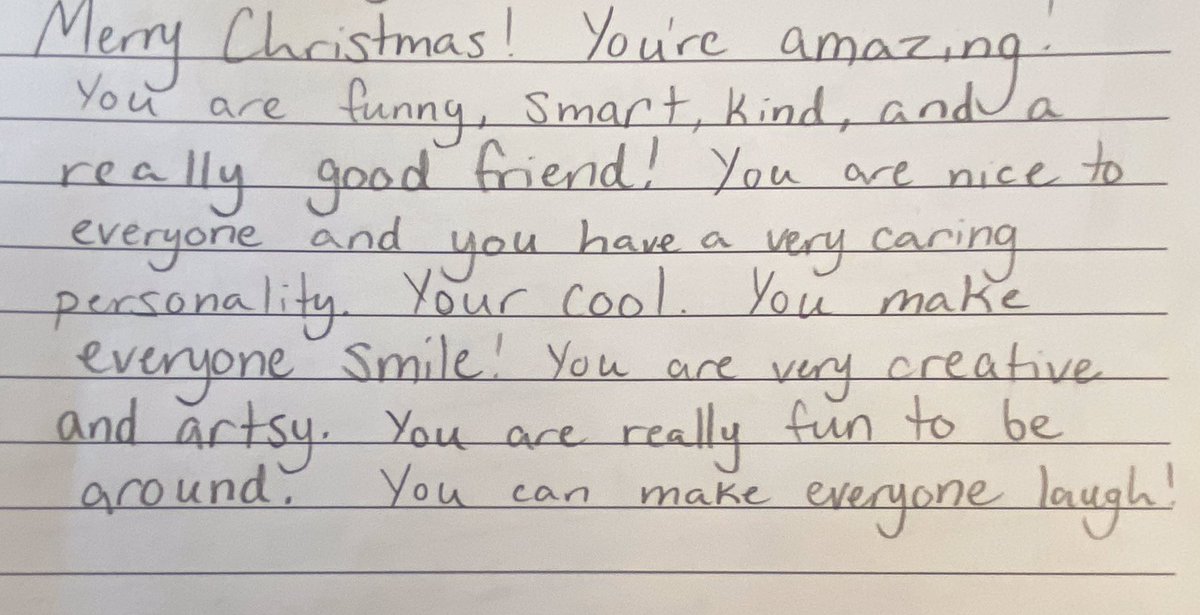 Merry Christmas! You're amazing!
You are funny, smart, kind, and a
really good friend! You are nice to
everyone and you have a very caring
personality. Your cool. You make
everyone smile! You are very creative
and artsy. You are really fun to be
around. You can make everyone laugh!